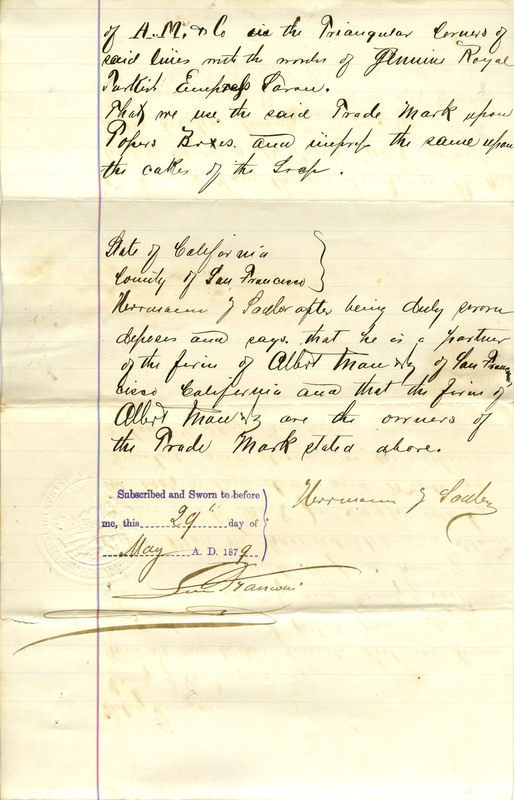 of A. M. & Co in the Triangular Corners of
said lines with the words of Genuine Royal
Empress Savon.
That we use the said Trade Mark upon
Papers Boxes. and impress the same upon
the cakes of the Soap.
State of California
County of San Francisco
Herrmann J Sadler after being duly sworn
deposes and says. that he is a partner
of the firm of Albert Mau & Co of San Fran
cisco California and that the firm of
Albert Mau & Co are the owners of
the Trade Mark stated above.
Herrmann J Sadler
Subscribed and Sworn to before
me, this 29" day of
May A. D. 1879